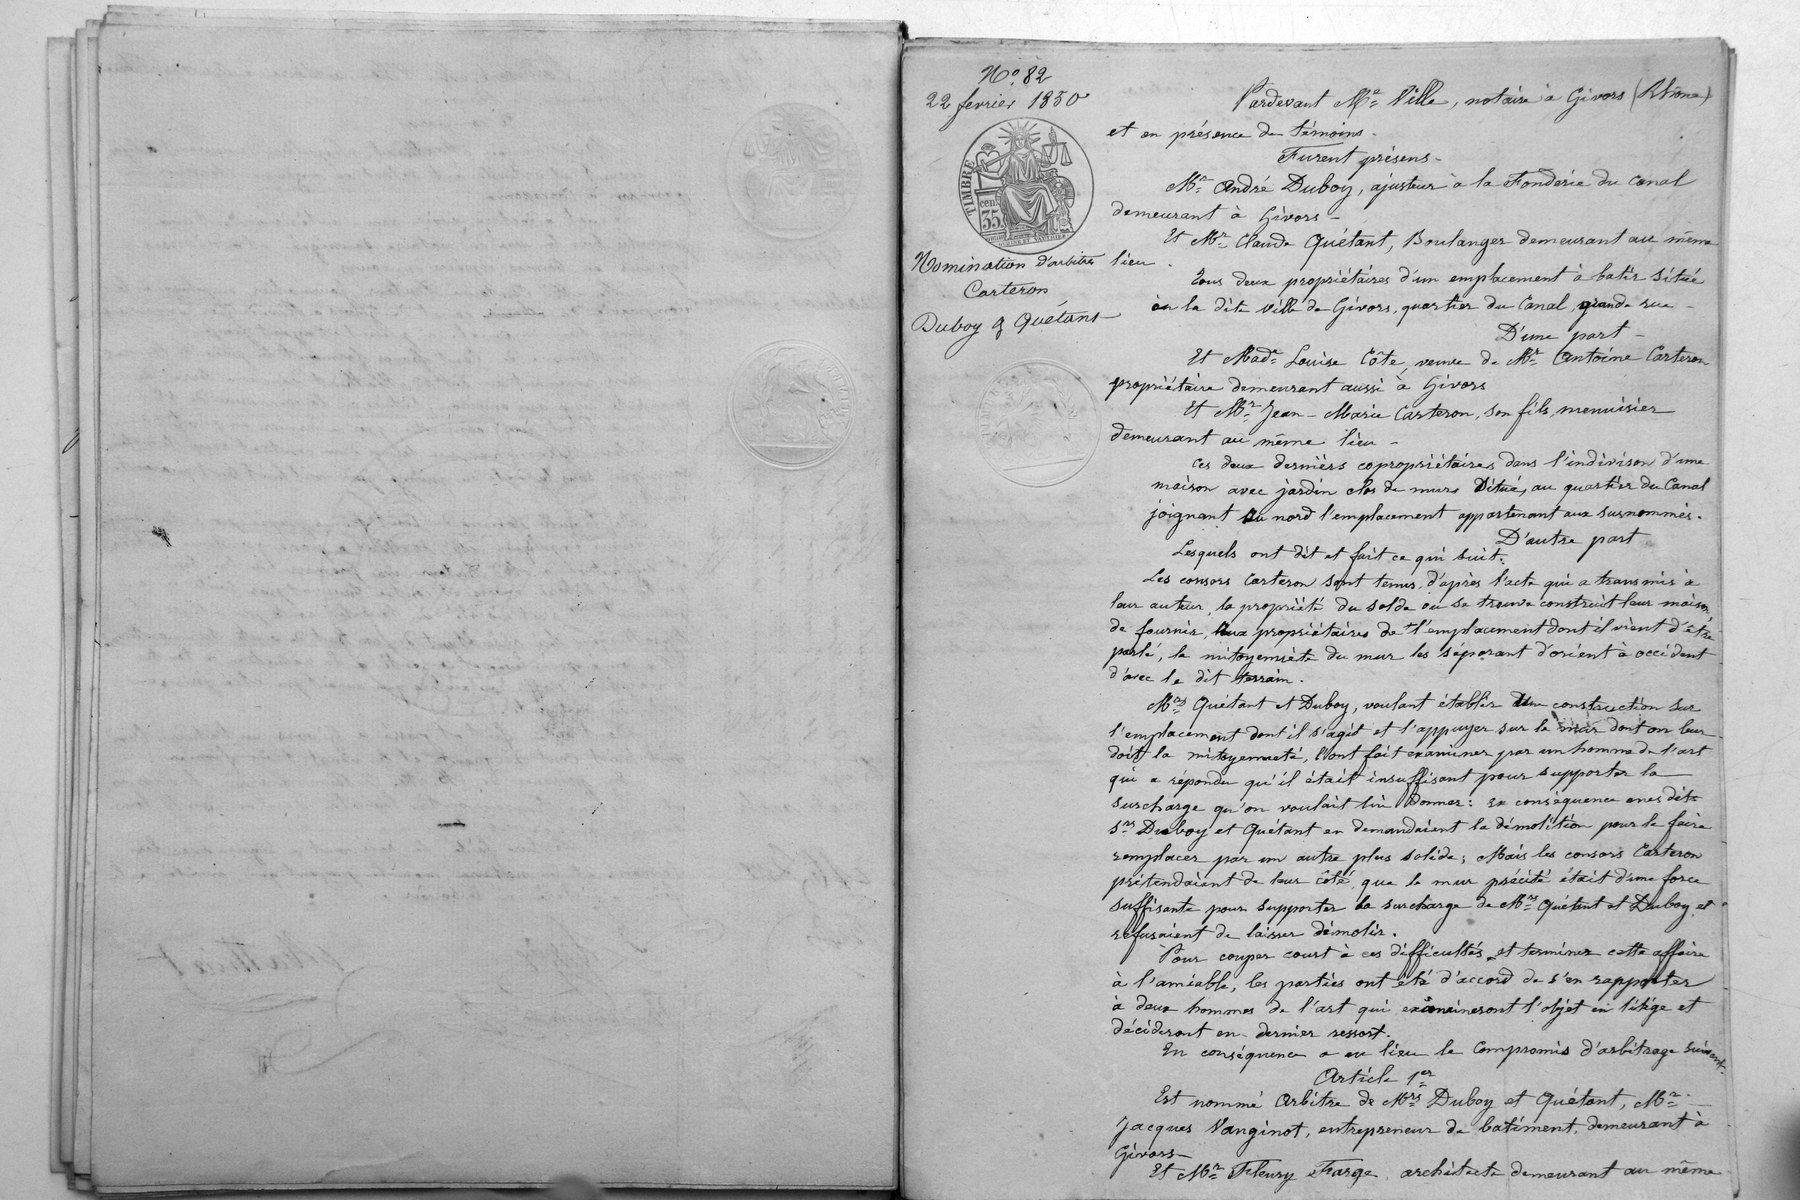 N.o 82
22 fevrier 1850
TIMBRE
cent
35
Nomination d'arbitre
Carteron
Duboy & Quétant
Pardevant Me Ville, notaire à Givors (Rhône)
et en présence de témoins.
Furent présens -
Mr André Duboy, ajusteur à la Fonderie du Canal
demeurant à Givors -
Et Mr Claude Quétant, Boulanger demeurant au même
lieu.
Tous deux propriétaires d'un emplacement à batir situé
en la dite ville de Givors, quartier du Canal, grande rue -
D'une part -
Et Made Louise Côte, veuve de Mr Antoine Carteron
propriétaire demeurant aussi à Givors
Et Mr Jean-Marie Carteron, son fils, menuisier
demeurant au même lieu -
Ces deux derniers copropriétaires dans l'indivison d'une
maison avec jardin clos de murs situés au quartier du Canal
joignant au nord l'emplacement appartenant aux susnommés.
D'autre part
Lesquels ont dit et fait ce qui suit:
Les consors Carteron sont tenus, d'après l'acte qui a transmis à
leur auteur, la propriété du solde ou se trouve construit leur maison,
de fournir, aux propriétaires de l'emplacement dont il vient d'être
parlé, la mitoyenneté du mur les séparant d'orient à occident
d'avec le dit terrain.
Mrs Quétant et Duboy, voulant établir une construction sur
l'emplacement dont il s'agit et l'appuyer sur le mur dont on leur
doit la mitoyenneté, l'ont fait examiner par un homme de l'art
qui a répondu qu'il était insuffisant pour supporter la
surcharge qu'on voulait lui donner: En conséquence mes dits
srs Duboy et Quétant en demandaient la démolition pour le faire
remplacer par un autre plus solide; Mais les consors Carteron
prétendaient de leur côté, que le mur précité était d'une force
suffisante pour supporter la surcharge de Mrs Quétant et Duboy, et
refusaient de laisser démolir.
Pour couper court à ces difficultés et terminer cette affaire
à l'amiable, les parties ont été d'accord de s'en rapporter
à deux hommes de l'art qui examineront l'objet en litige et
décideront en dernier ressort.
En conséquence a eu lieu le Compromis d'arbitrage suivant.
Article 1er
Est nommé Arbitre de Mrs Duboy et Quétant, Mr
Jacques Vanginot, entrepreneur de batiment, demeurant à
Givors -
Et Mr Fleury Farge, architecte demeurant au même